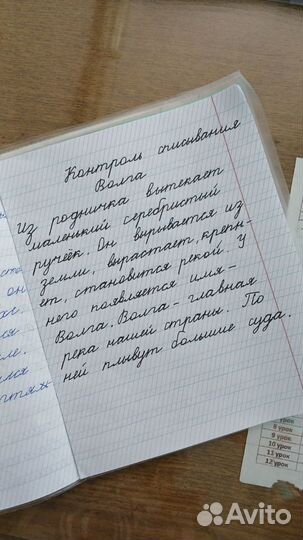 Контроль списывания
Волга
Из родничка вытекает
маленький серебристый
ручеёк. Он вырывается из
земли, вырастает, крепн-
ет, становится рекой. У
него появляется имя-
Волга. Волга - главная
река нашей страны. По
ней плывут большие суда.
он
8 урок
9 урок
10 урок
11 урок
12 урок
Avito